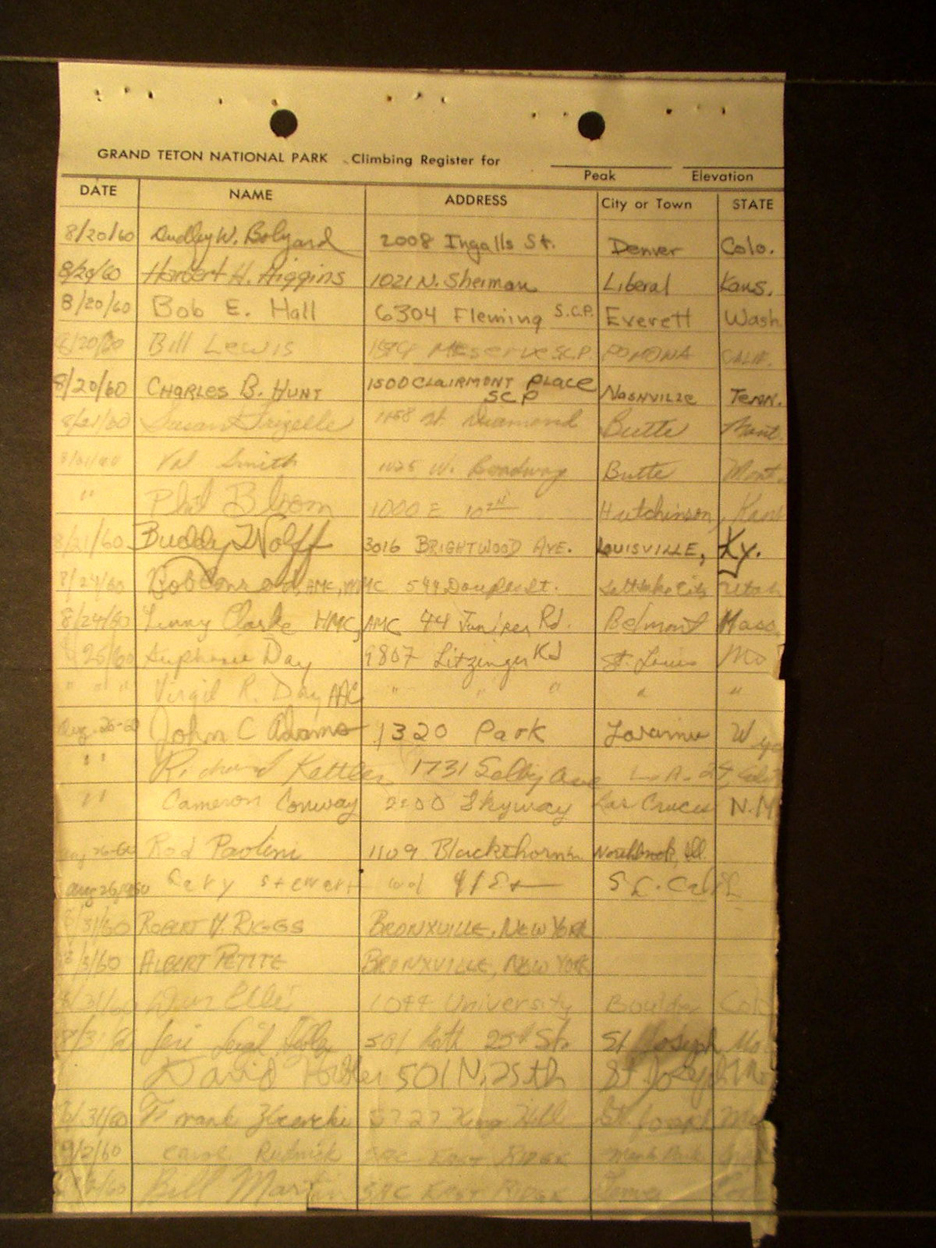 GRAND TETON NATIONAL PARK Climbing Register for
Peak Elevation
DATE NAME ADDRESS City or Town STATE
8/20/60 Dudley W. Bolyard 2008 Ingalls St. Denver Colo.
8/20/60 H. Higgins 1021 N. Sherman Liberal Kans.
8/20/60 Bob E. Hall 6304 Fleming S.C.P. Everett Wash
8/20/60 Bill Lewis Meserve S.C.P. POMONA CALIF.
8/20/60 CHARLES B. HUNT 1500 CLAIRMONT PLACE NASHVILLE TENN.
SCP
8/21/60 Susan Diamond Butte Mont.
Val Smith W. Broadway Butte Mont.
" Phil Bloom 1000 E 10th Hutchinson, Kans
8/21/60 Buddy Wolff 3016 BRIGHTWOOD AVE. LOUISVILLE, Ky.
8/24/60 Bob 544 Douglas St. Salt Lake City Utah
8/24/60 Clarke HMC, AMC 44 Juniper Rd. Belmont Mass
8/25/60 Stephanie Day 9807 Litzinger Rd St. Louis Mo
" " " Virgil R. Day " " " " "
Aug. 26-60 John C Adams 1320 Park Laramie Wyo
" Richard Kettler 1731 Selby Ave L.A. Calif
" Cameron Conway 2100 Skyway Las Cruces N.M
Aug 26-60 Rod Paolini 1109 Blackthorn Northbrook, Ill.
Aug 26, 1960 Stewart
8/31/60 ROBERT RIGGS BRONXVILLE, NEW YORK
ALBERT PETITE BRONXVILLE, NEW YORK
8/31/60 1044 University Boulder Col
8/31/60 Leigh 501 Noth 25th St. St Joseph Mo
David 501 N. 25th St Joseph Mo
8/31/60 Frank King Hill St Joseph Mo
9/2/60 Carol Rudnick EAST RIDGE
Bill Martin EAST RIDGE